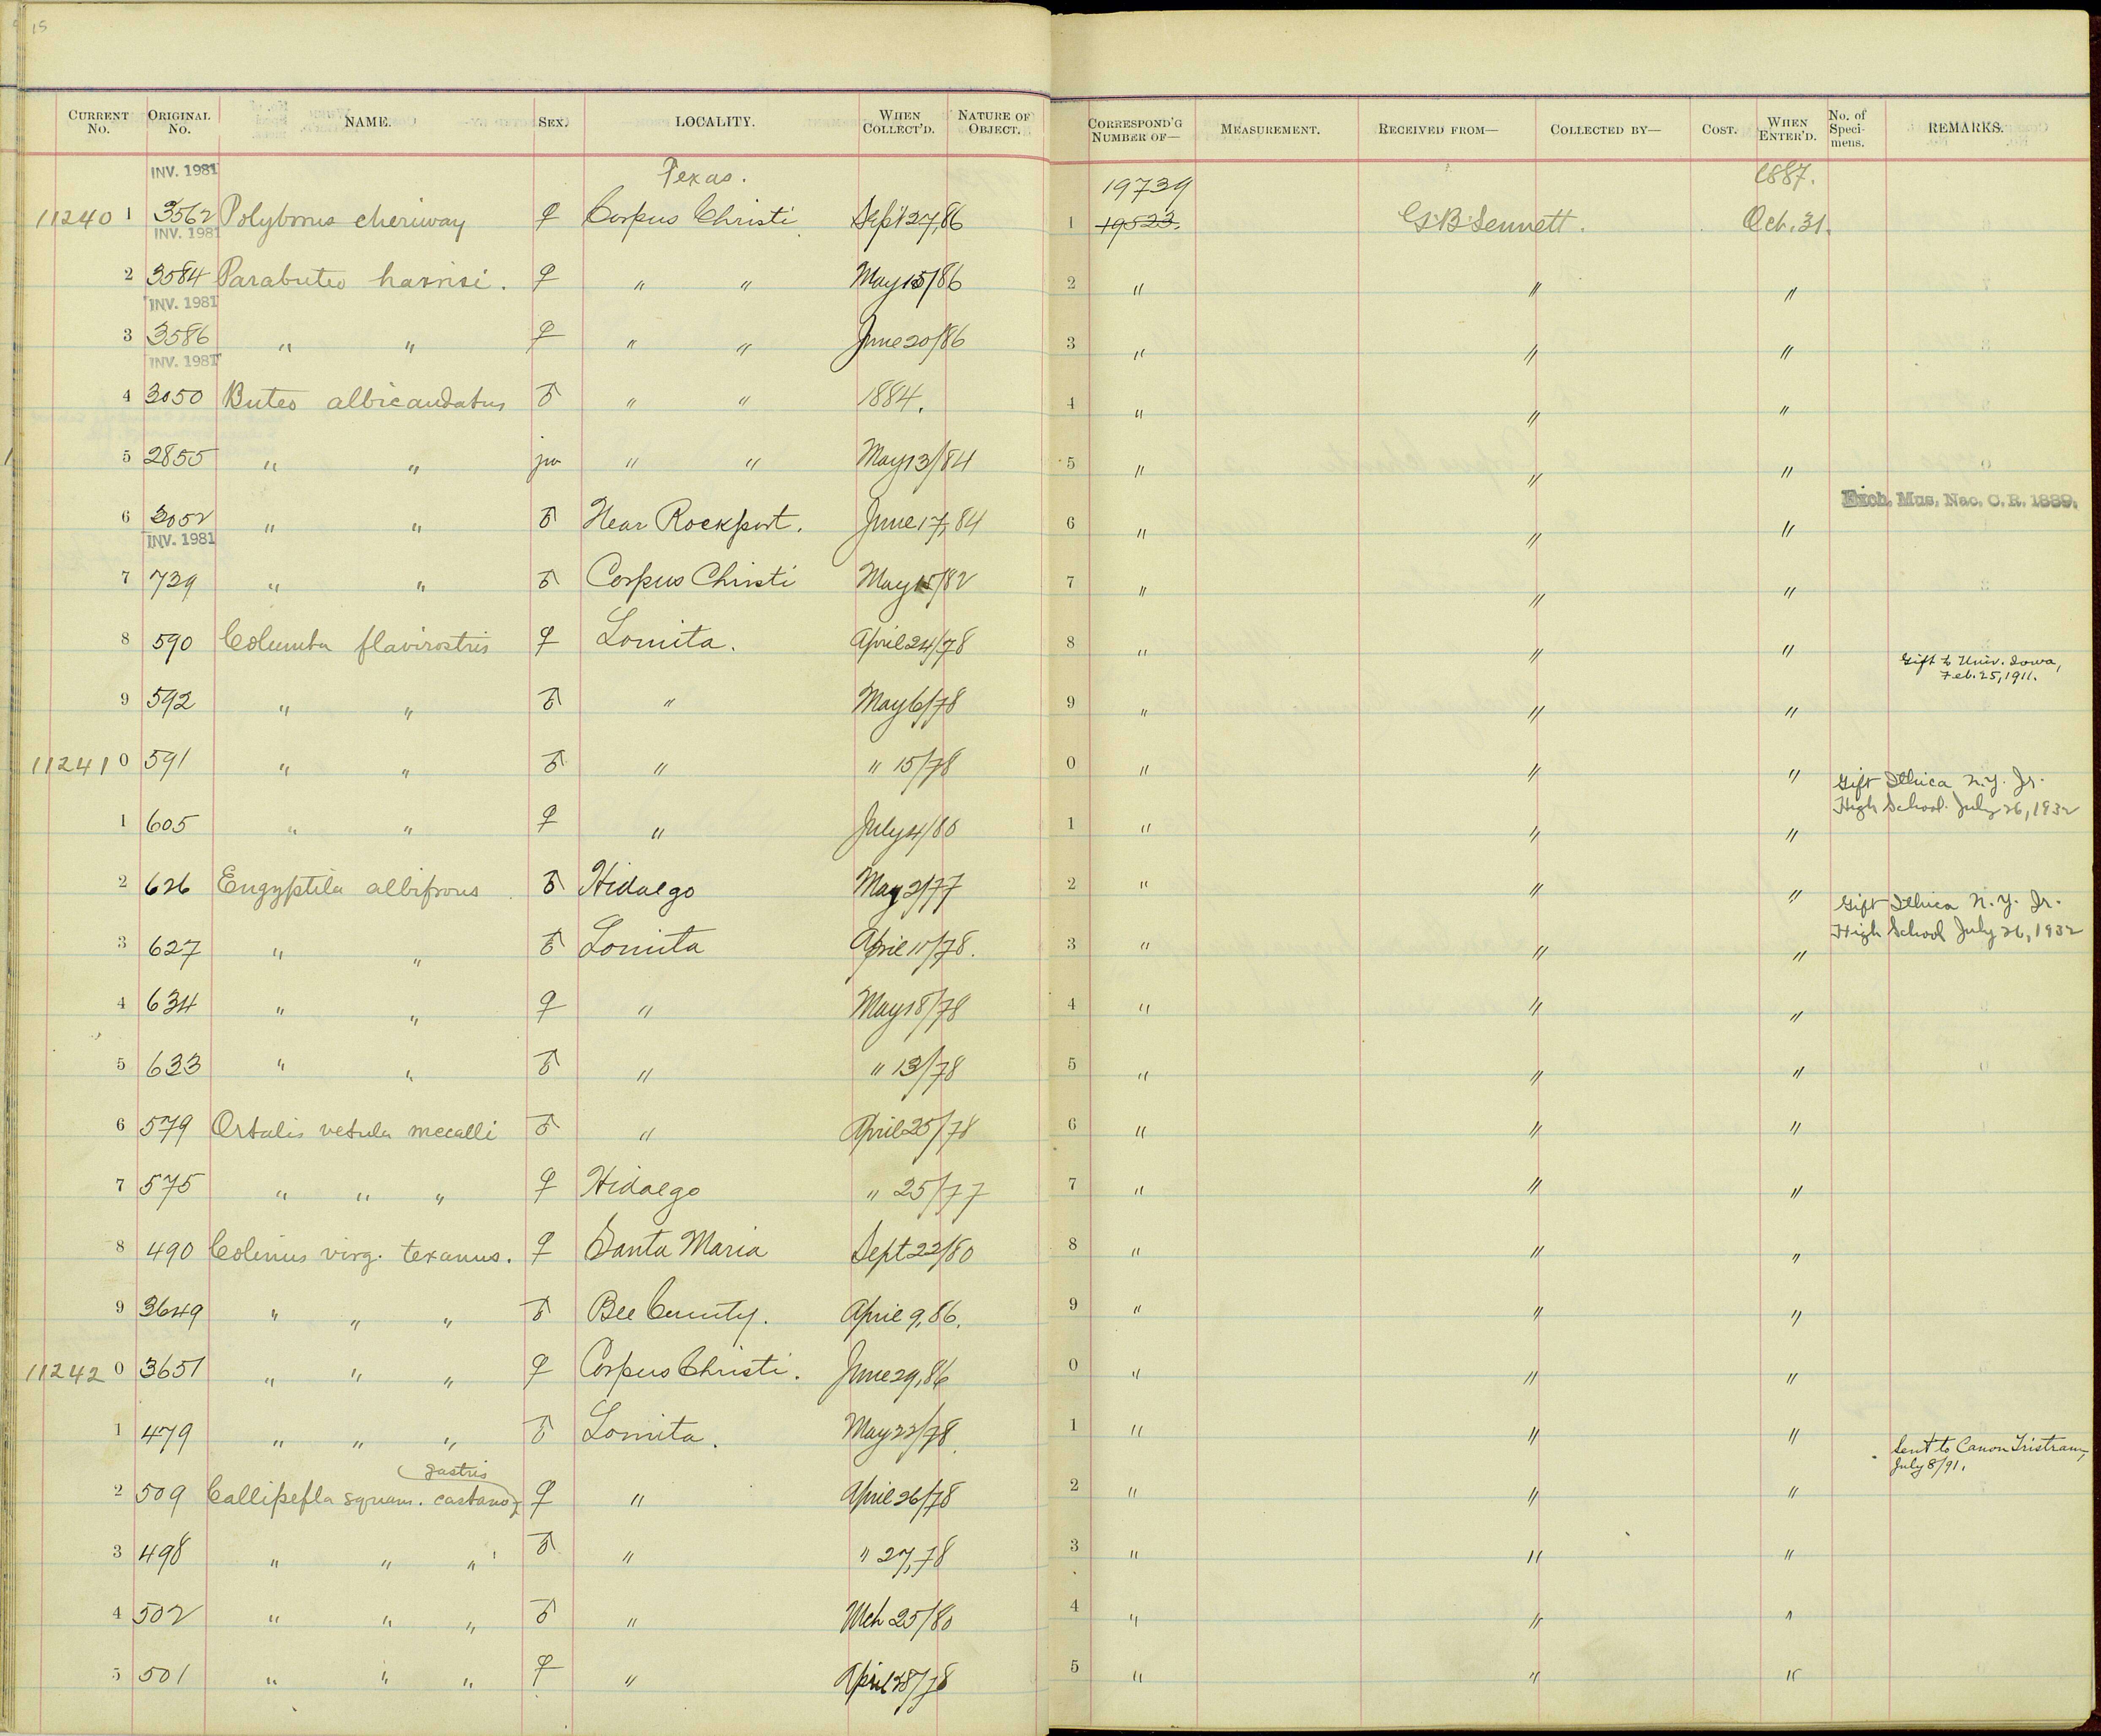 15
CURRENT No. ORIGINAL No. NAME. SEX. LOCALITY. WHEN COLLECT'D. NATURE OF OBJECT. CORRESPOND'G NUMBER OF— MEASUREMENT. RECEIVED FROM— COLLECTED BY— COST. WHEN ENTER'D. No. of Speci-mens. REMARKS.
INV. 1981 Texas. 19739 1887.
11240 1 3562 Polyborus cheriway ♀ Corpus Christi Sept 27,86 1 19523. G.B. Sennett. Oct. 31.
INV. 1981
2 3584 Parabuteo harrisi. ♀ " " May 15/86 2 " " "
INV. 1981
3 3586 " " ♀ " " June 20/86 3 " " "
INV. 1981
4 3050 Buteo albicaudatus ♂ " " 1884. 4 " " "
5 2855 " " juv " " May 13/84 5 " " "
Exch. Mus. Nac. C. R. 1889.
6 3052 " " ♂ Near Rockport. June 17,84 6 " " "
INV. 1981
7 739 " " ♂ Corpus Christi May 15/82 7 " " "
8 590 Columba flavirostris ♀ Lomita. April 24/78 8 " " "
Gift to Univ. Iowa,
Feb. 25, 1911.
9 592 " " ♂ " May 6/78 9 " " "
11241 0 591 " " ♂ " " 15/78 0 " " "
Gift Ithica N.Y. Jr.
High School July 26, 1932
1 605 " " ♀ " July 4/80 1 " " "
2 626 Engyptila albifrons ♂ Hidalgo May 2/77 2 " " "
Gift Ithica N.Y. Jr.
High School July 26, 1932
3 627 " " ♂ Lomita April 11/78. 3 " " "
4 634 " " ♀ " May 18/78 4 " " "
5 633 " " ♂ " " 13/78 5 " " "
6 579 Ortalis vetula mccalli ♂ " April 25/78 6 " " "
7 575 " " " ♀ Hidalgo " 25/77 7 " " "
8 490 Colinus virg. texanus. ♀ Santa Maria Sept 22/80 8 " " "
9 3649 " " " ♂ Bee County. April 9,86. 9 " " "
11242 0 3651 " " " ♀ Corpus Christi. June 29,86 0 " " "
1 479 " " " ♂ Lomita. May 22/78. 1 " " "
Sent to Canon Tristram,
July 8/91.
gastris
2 509 Callipepla squam. castano ♀ " April 26/78 2 " " "
3 498 " " " ♂ " " 27,78 3 " " "
4 502 " " " ♂ " Mch 25/80 4 " " "
5 501 " " " ♀ " April 28/78 5 " " "